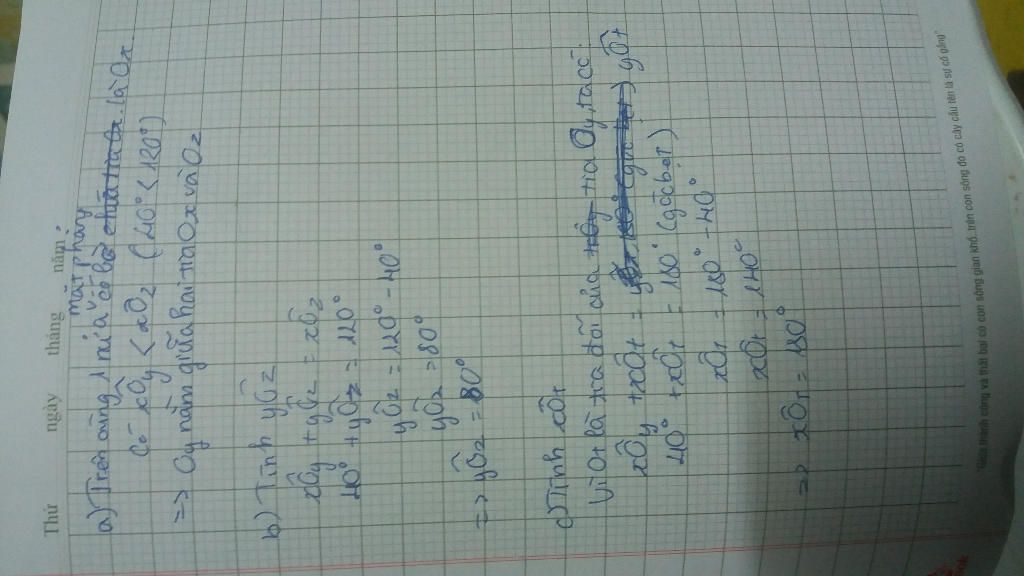 Thứ ngày tháng năm
mặt phẳng
a) Trên cùng 1 nửa có bờ chứa tia Ox là Ox
Có xÔy < xÔz (40° < 120°)
=> Oy nằm giữa hai tia Ox và Oz
b) Tính yÔz
xÔy + yÔz = xÔz
40° + yÔz = 120°
yÔz = 120° - 40°
yÔz = 80°
=> yÔz = 80°
c) Tính xÔt
Vì Ot là tia đối của tia Oy, ta có:
xÔy + xÔt = yÔt
40° + xÔt = 180° (góc bẹt)
xÔt = 180° - 40°
xÔt = 140°
=> xÔt = 140°
"Giữa thành công và thất bại có con sông gian khổ, trên con sông đó có cây cầu tên là sự cố gắng"